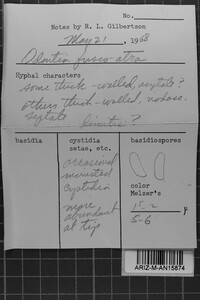 No.
Notes by R. L. Gilbertson
May 21, 1968
Odontia fusco-atra
Hyphal characters
some thick-walled, aseptate?
others thick-walled, nodose-
septate
basidia
cystidia
setae, etc.
basidiospores
occasional
incrusted
cystidia
more
abundant
at tip
color
Melzer's
5-6
µ
ARIZ-M-AN15874